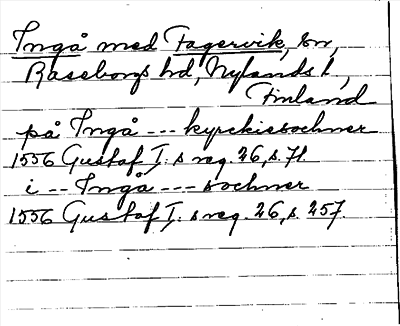 Ingå med Fagervik, sn,
Raseborgs hd, Nylands l,
Finland
på Ingå --- kyrckiesochner
1556 Gustaf I:s reg. 26, s. 71.
i -- Ingå --- sochner
1556 Gustaf I:s reg. 26, s. 257.